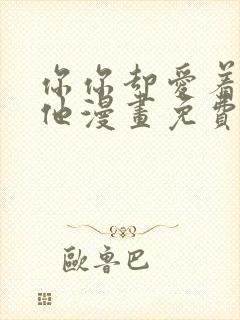 你你却愛着
他漫畫免費
歐魯巴